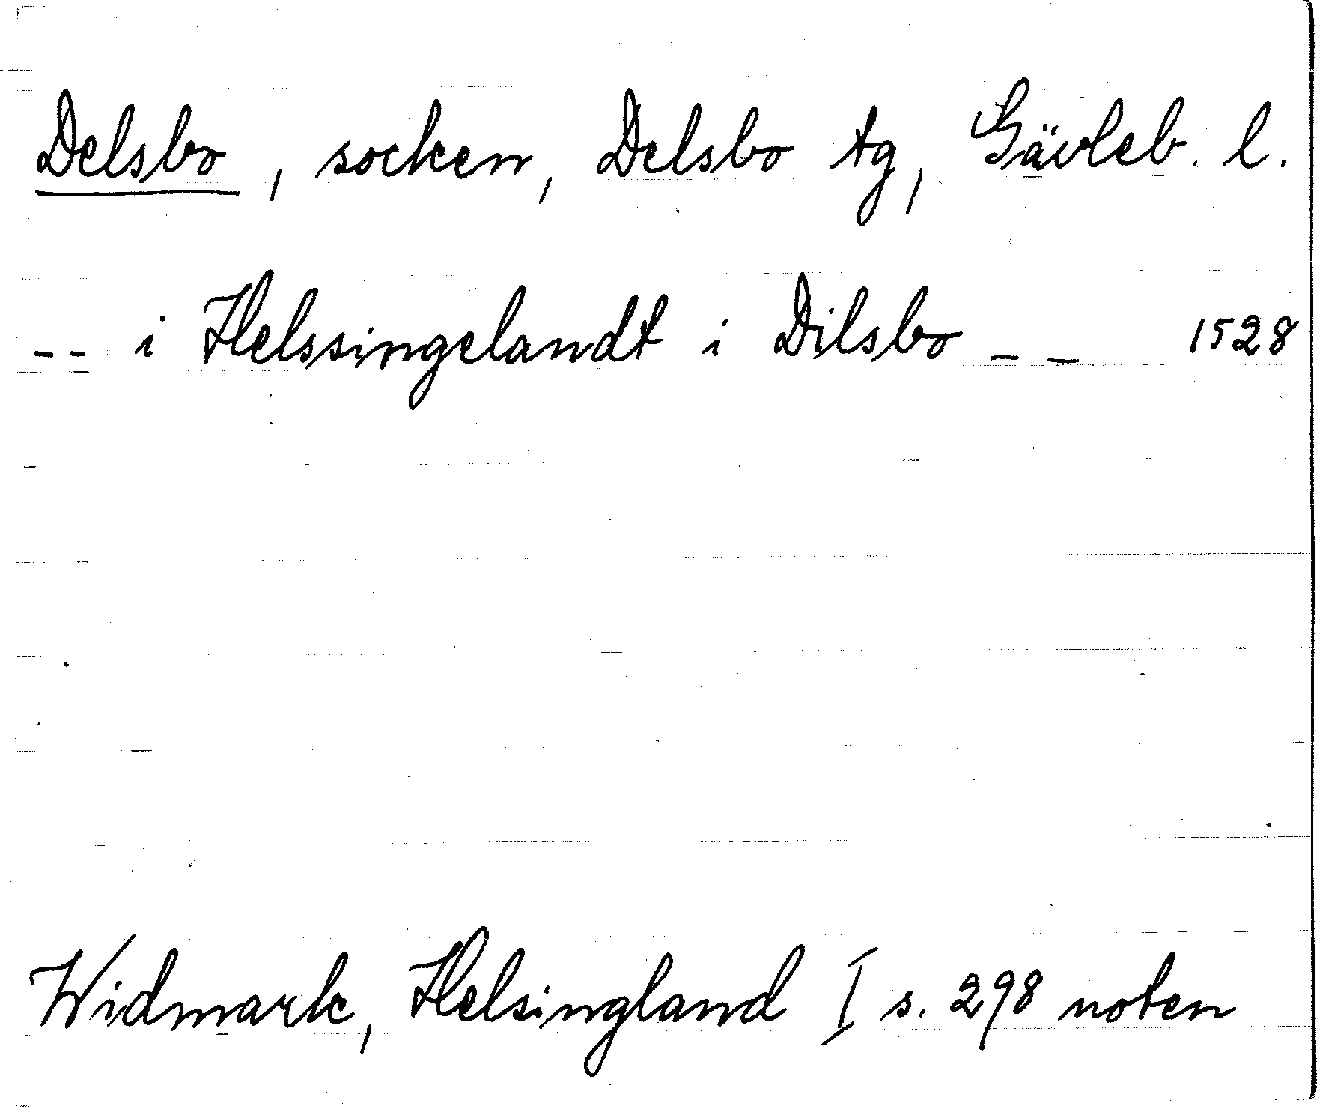 Delsbo, socken, Delsbo tg, Gävleb. l.
-- i Helssingelandt i Dilsbo -- 1528
Widmark, Helsingland I s. 298 noten